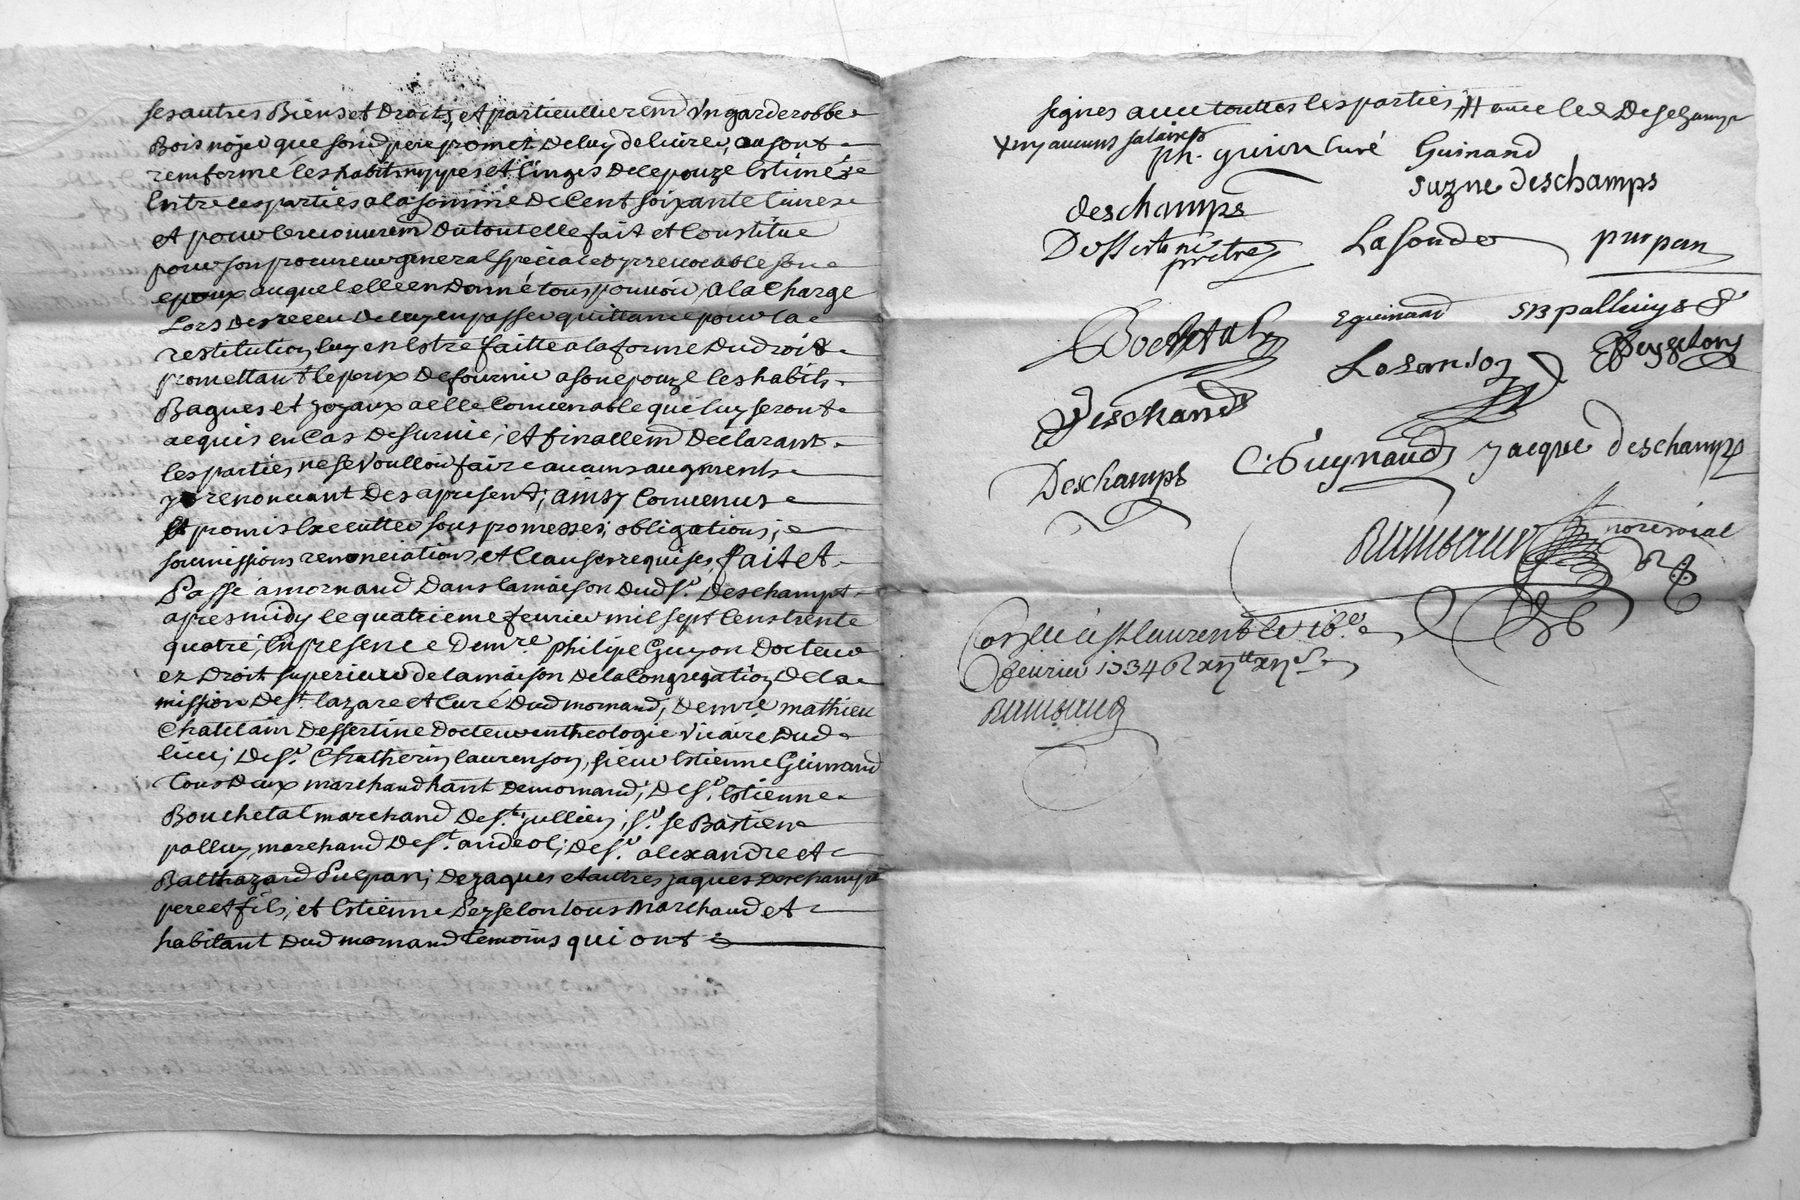 ses autres Biens et Droits, et particullierem̃ Un garderobbe
Bois noÿer que son d pere promet de luy delivrer, ou sont
renfermé les habits nyppes et linges de lepouze Estimés
Entre les parties a la somme de Cent soixante livres
et pour le recouvrem̃ du tout elle fait et Constitue
pour son procureur general special et yrrevocable son
epoux auquel elle en Donne tous pouvoir, a la Charge
Lors des receu de luy en passer quittance pour la
restitution luy en Estre faitte a la forme du droit
promettant lepoux de fournir a son epouze les habits
Bagues et Joyaux a elle Convenable qui luy seront
acquis en Cas de survie; et finallem̃ declarant
les parties ne se voulloir faire aucuns augments
y renoncant des apresent; ainsy Convenus
et promis Executter sous promesses, obligations,
soumissions renonciations, et Clauses requises, fait et
Passé a mornand dans la maison dud sr. Deschamps
apres midy le quatrieme fevrier mil sept Cens trente
quatre, En presence de mre. philipe Guyon docteur
ez Droit superieur de la maison de la Congregation de la
mission de st. lazare et Curé dud mornand, de mre mathieu
Chatelain Dessertine docteur en theologie Vicaire dud
lieu; de sr. Chatherin laurenson, sieur Estienne Guinand
Tous deux marchand habit de mornand; de sr. Estienne
Bouchetal marchand de st. jullien; sr. seBastien
palluy marchand de st. andeol; de sr. alexandre et
Balthazard Pupan; de jaques et autres jaques Deschamps
pere et fils, et Estienne Peyselon tous Marchand et
habitant dud mornand temoins qui ont
signes avec touttes les parties, # avec led Deschamps
x ny aucuns salaires
ph. guion Curé Guinand
deschamps Suzne deschamps
Dessertine prêtre Lasonde pupan
Bochetal eguinand SB palluys
Losanson Peyselon
Deschamps
Deschamps C. Guynaud Jacque deschamps
Rambaud no.re royal
Con.llé a st laurent le 16e
fevrier 1734
Rambaud